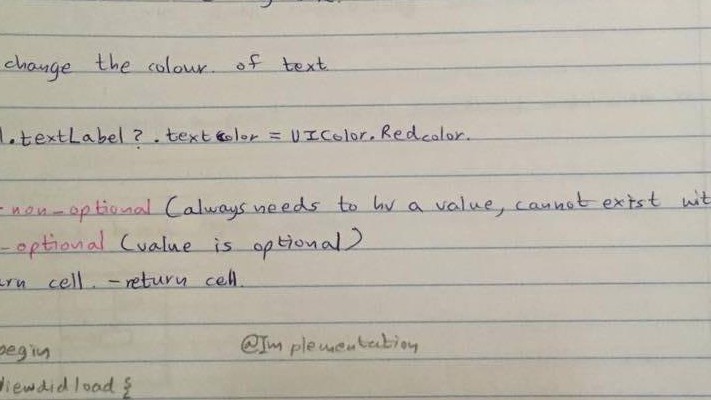 change the colour. of text
l.textLabel?.textcolor = UIColor.Redcolor.
- non-optional (always needs to hv a value, cannot exist wit
- optional (value is optional)
urn cell. - return cell.
begin @Implementation
Viewdidload {